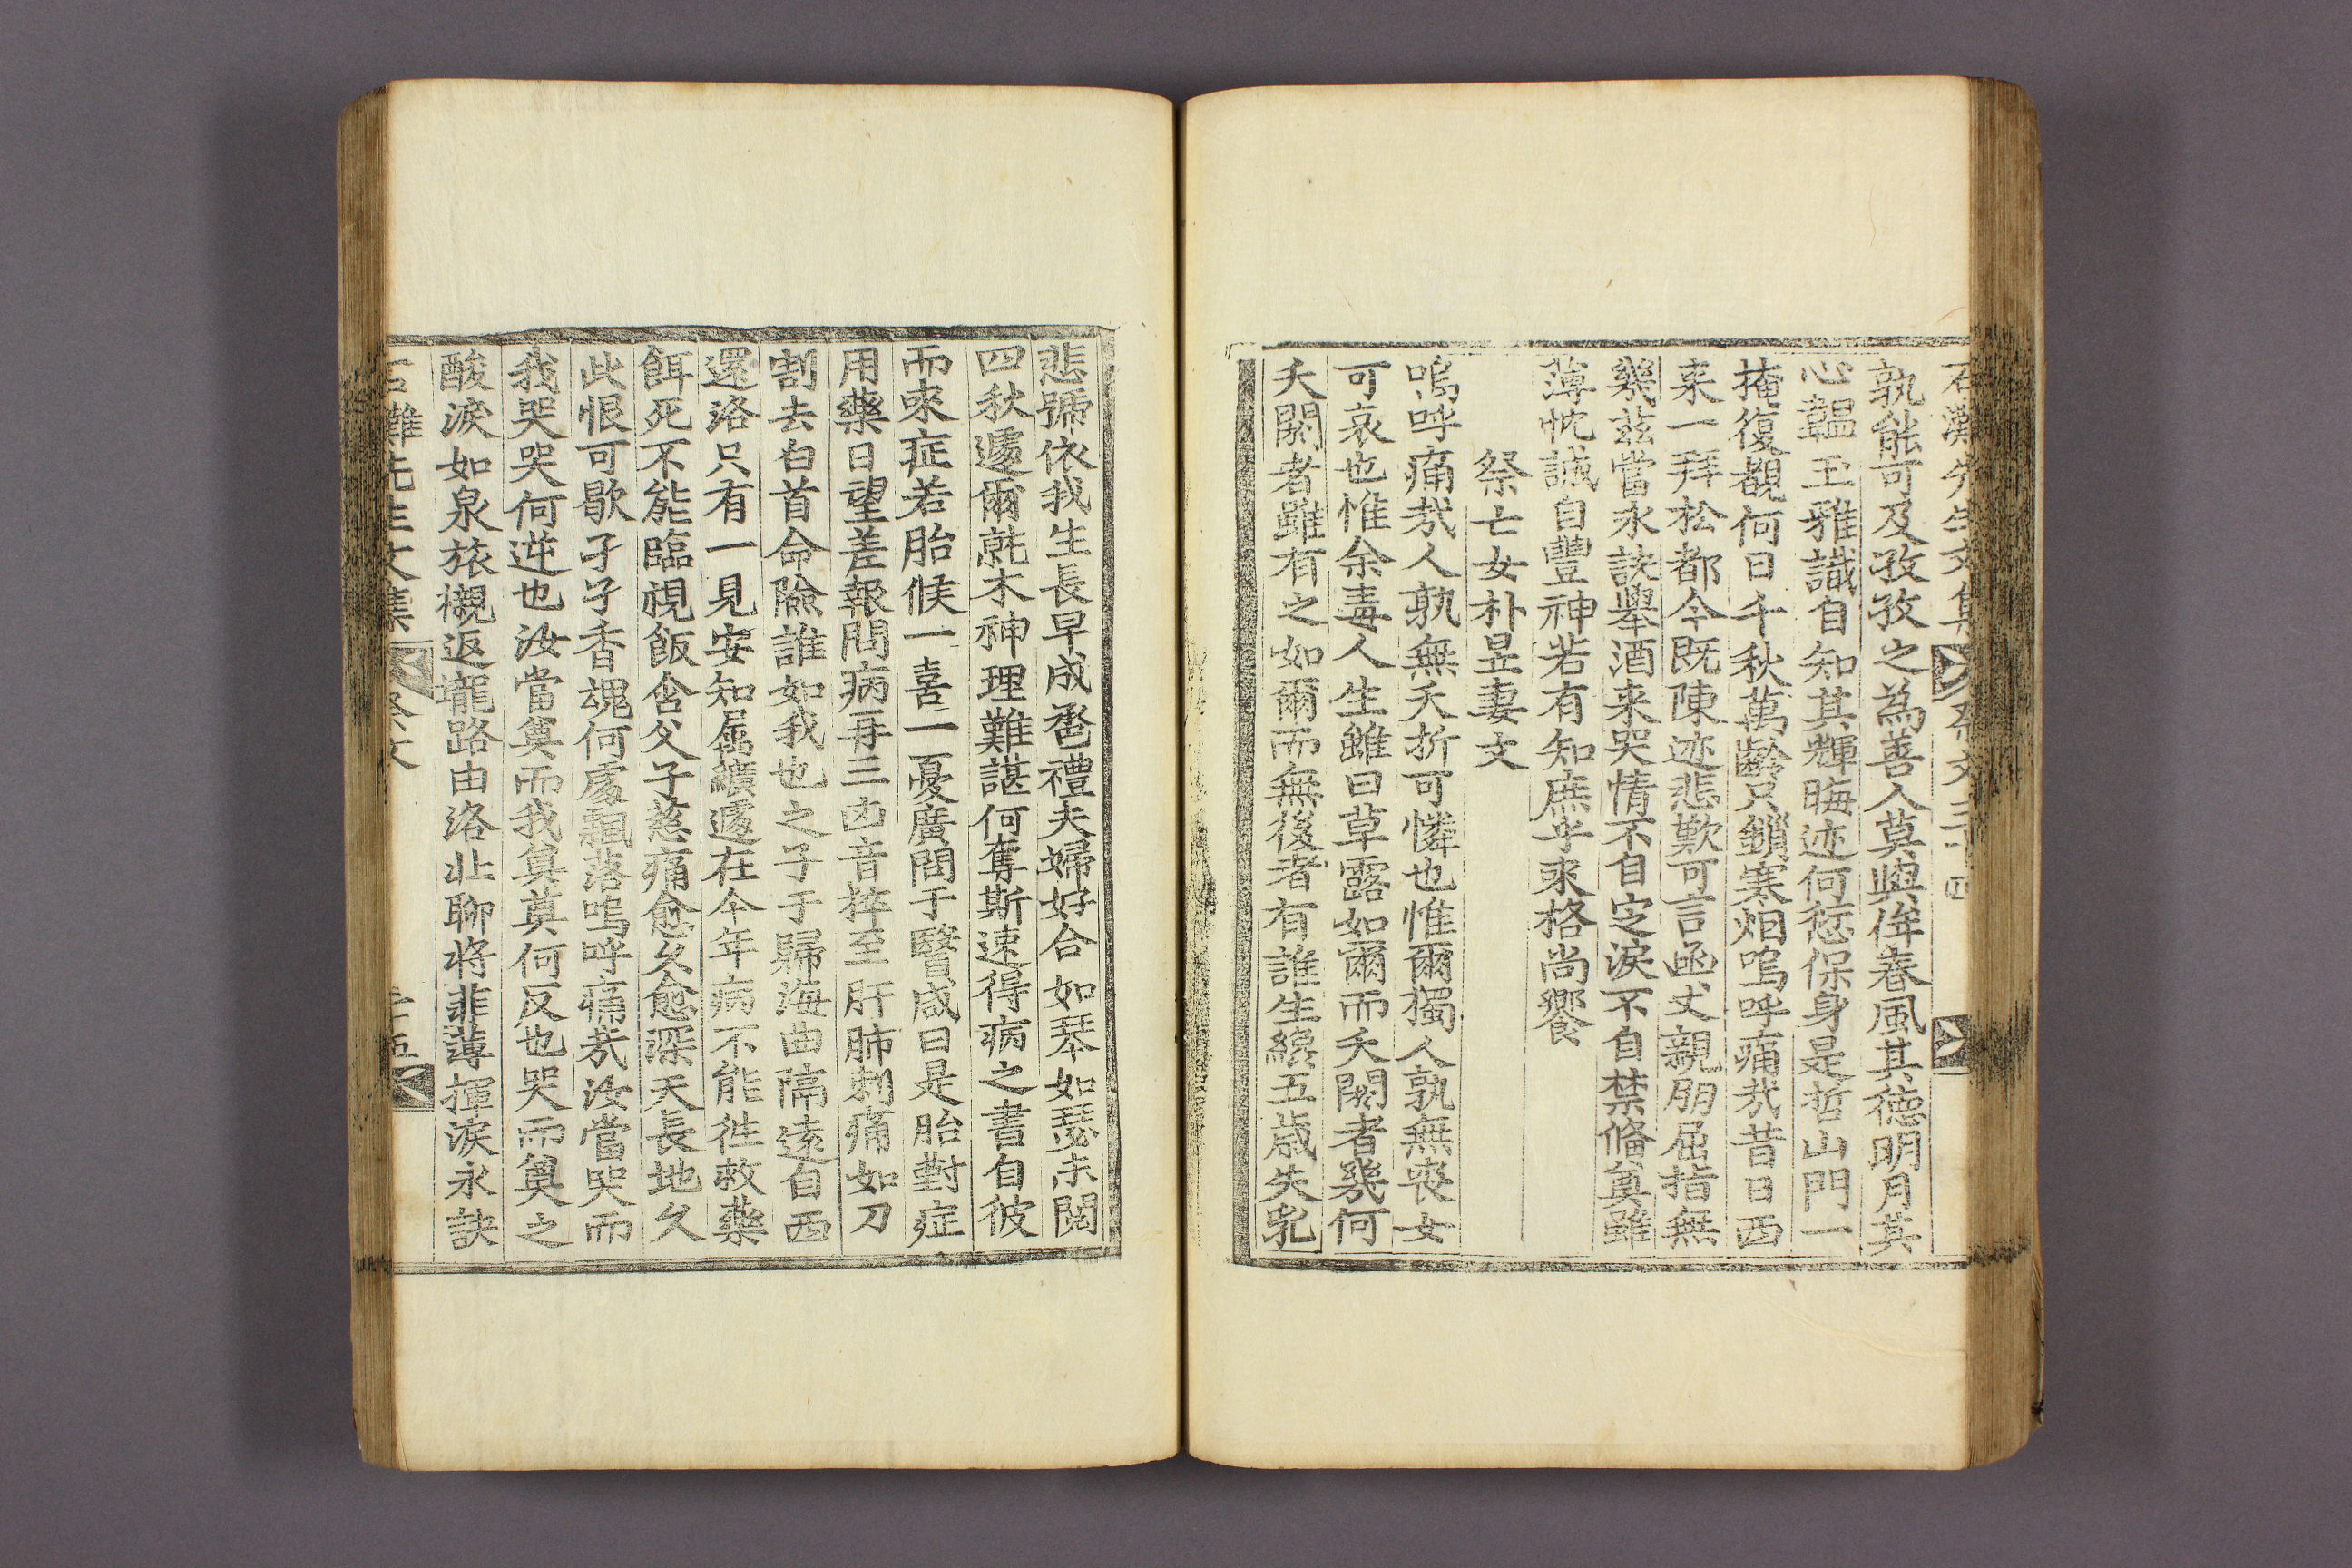 石灘先生文集 祭文 二十四
孰能可及孜孜之為善人莫與侔春風其德明月其
心韞玉雅識自知其輝晦迹何愆保身是哲山門一
掩復覩何日千秋萬齡只鎖寒烟嗚呼痛哉昔日西
来一拜松都今既陳迹悲歎可言函丈親朋屈指無
幾玆當永訣擧酒来哭情不自定淚不自禁脩奠雖
薄忱誠自豊神若有知庶乎来格尚饗
祭亡女朴昱妻文
嗚呼痛哉人孰無夭折可憐也惟爾獨人孰無喪女
可哀也惟余毒人生雖曰草露如爾而夭閼者幾何
夭閼者雖有之如爾而無後者有誰生纔五歲失乳
悲號依我生長早成巹禮夫婦好合如琴如瑟未闋
四秋遽爾就木神理難諶何奪斯速得病之書自彼
而來症若胎候一喜一憂廣問于醫咸曰是胎對症
用藥日望差報問病再三凶音猝至肝肺刺痛如刀
割去白首命險誰如我也之子于歸海曲隔遠自西
還洛只有一見安知屬纊遽在今年病不能往救藥
餌死不能臨視飯含父子慈痛愈久愈深天長地久
此恨可歇孑孑香魂何處飄落嗚呼痛哉汝當哭而
我哭哭何逆也汝當奠而我奠奠何反也哭而奠之
酸淚如泉旅櫬返壠路由洛北聊將菲薄揮淚永訣
石灘先生文集 祭文 二十五